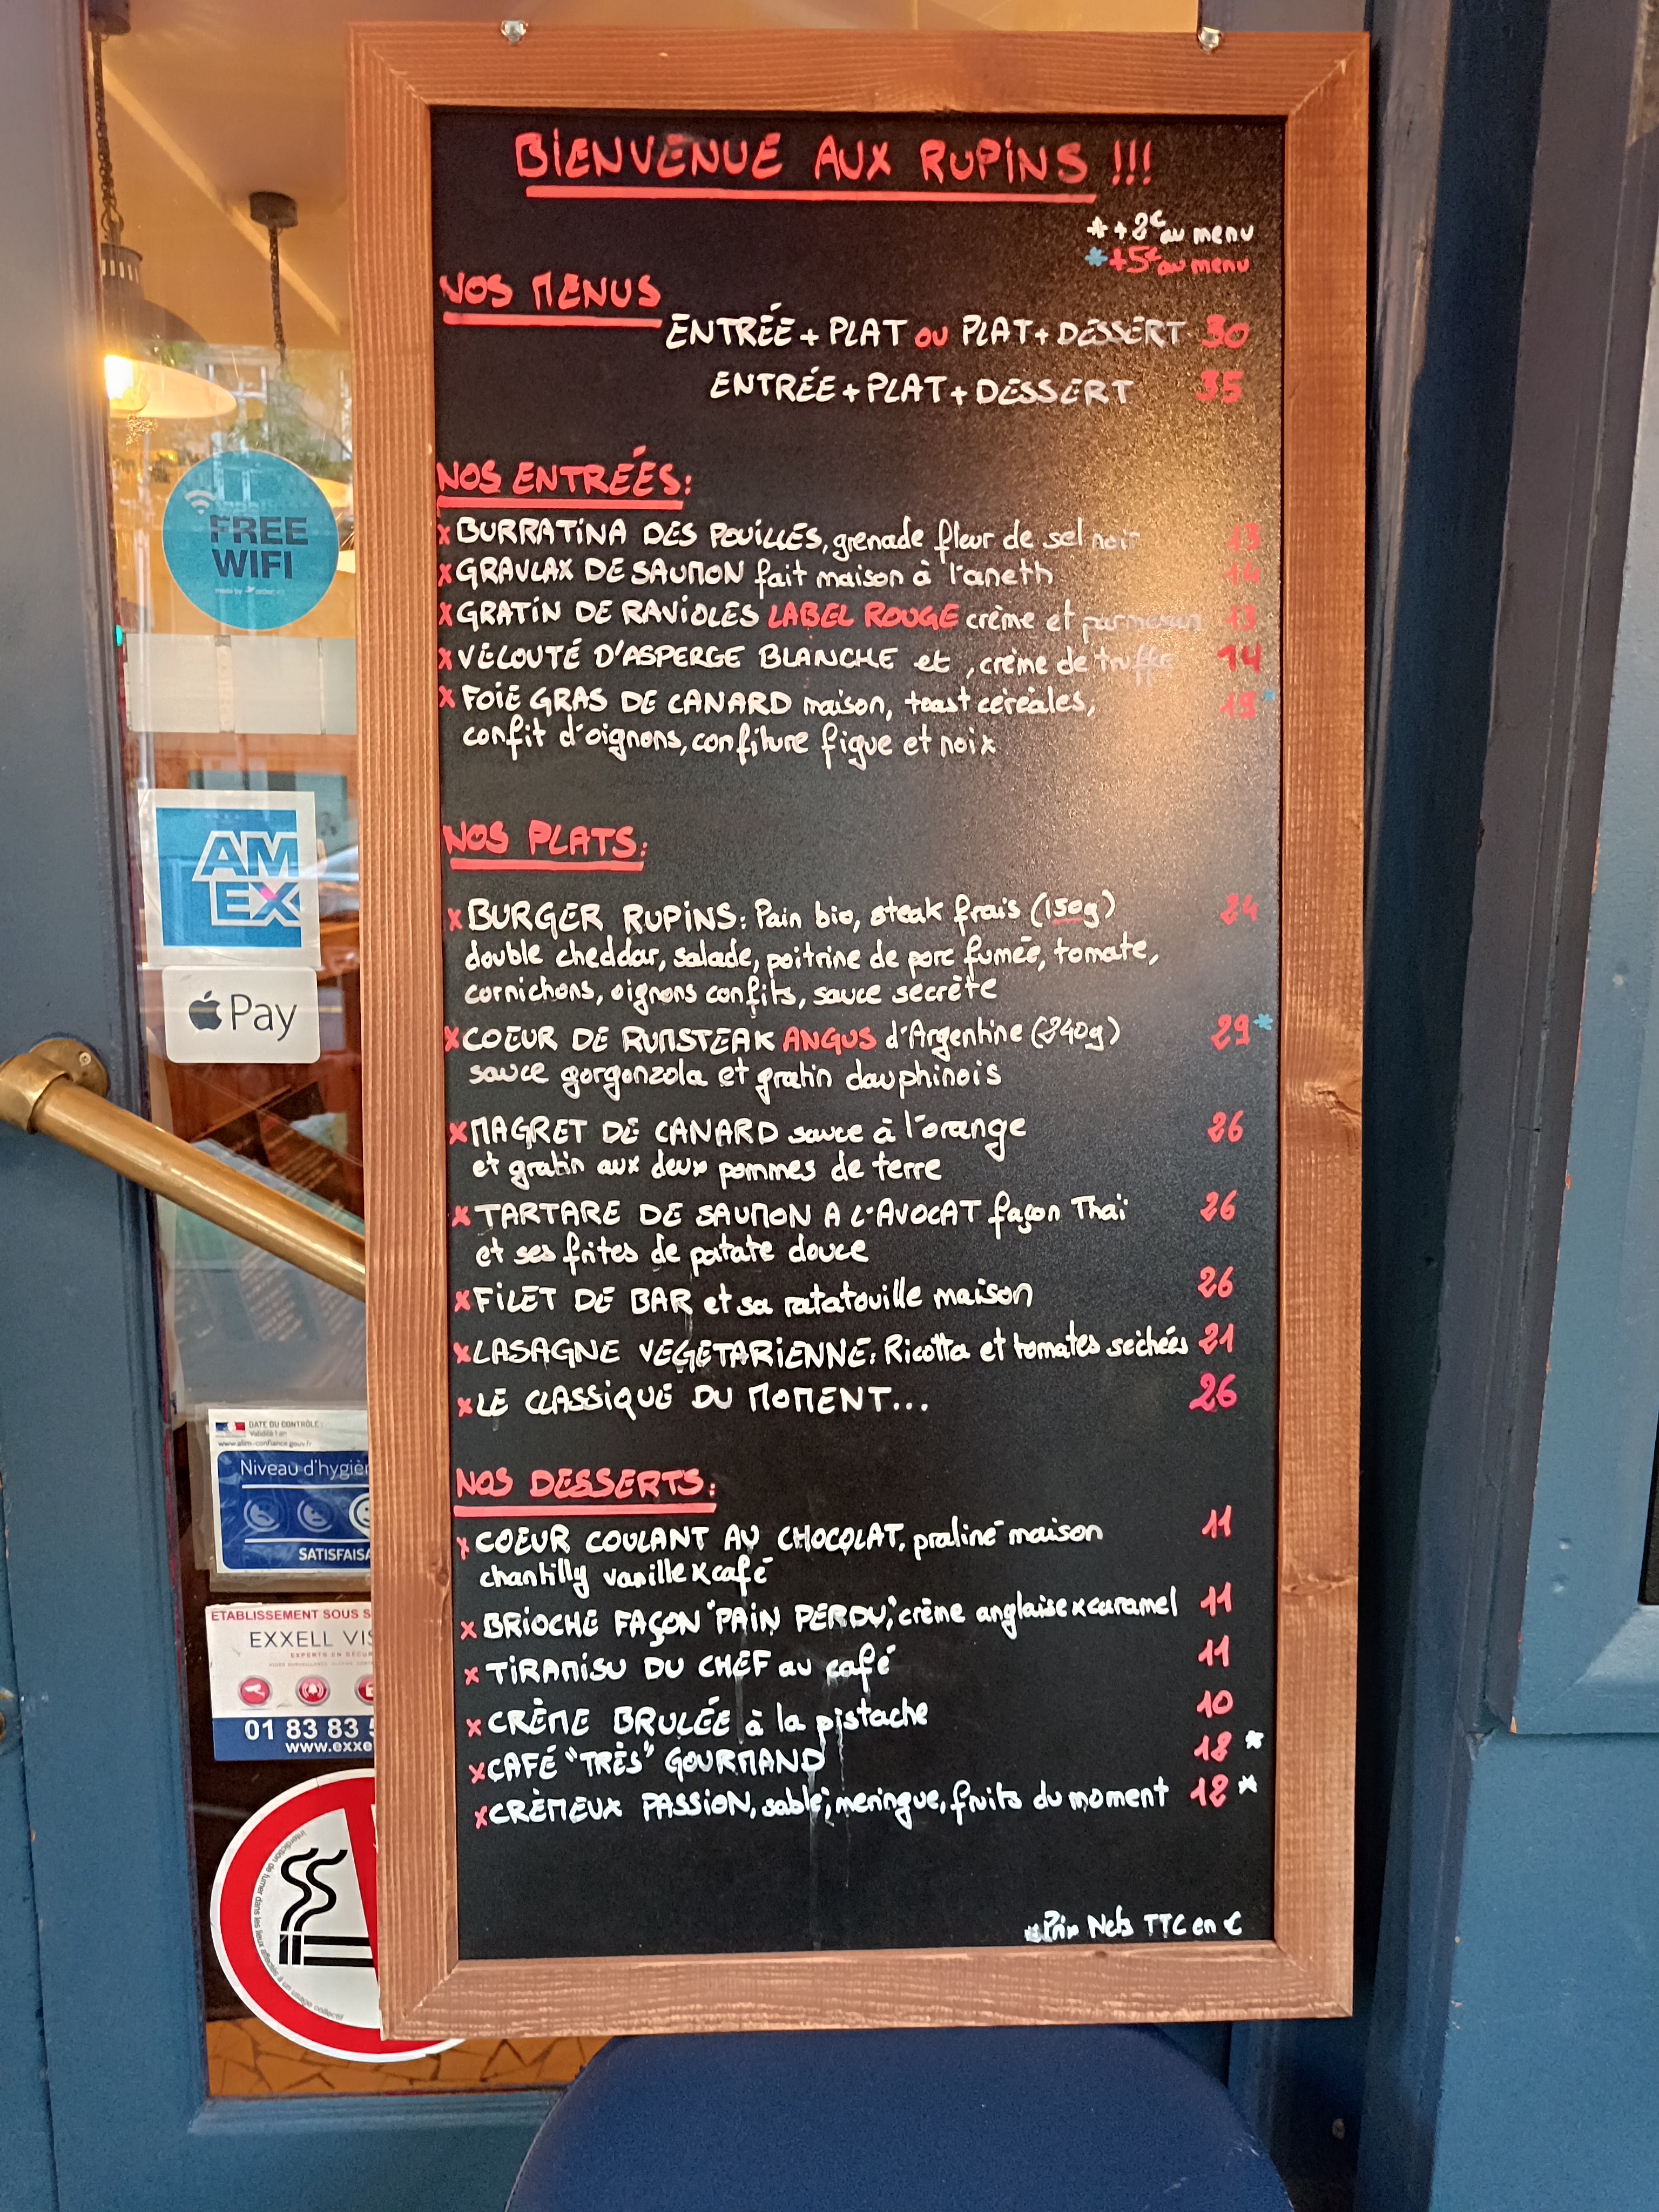 BIENVENUE AUX RUPINS !!!
* + 2€ au menu
* +5€ au menu
NOS MENUS
ENTRÉE + PLAT OU PLAT + DESSERT 30
ENTRÉE + PLAT + DESSERT 35
NOS ENTRÉES:
x BURRATINA DES POUILLES, grenade fleur de sel noir 13
x GRAVLAX DE SAUMON fait maison à l'aneth 14
x GRATIN DE RAVIOLES LABEL ROUGE crème et parmesan 13
x VELOUTÉ D'ASPERGE BLANCHE et , crème de truffe 14
x FOIE GRAS DE CANARD maison, toast céréales, *
confit d'oignons, confiture figue et noix
NOS PLATS:
x BURGER RUPINS: Pain bio, steak frais (150g) 24
double cheddar, salade, poitrine de porc fumée, tomate,
cornichons, oignons confits, sauce secrète
x COEUR DE RUMSTEAK ANGUS d'Argentine (240g) 29*
sauce gorgonzola et gratin dauphinois
x MAGRET DE CANARD sauce à l'orange 26
et gratin aux deux pommes de terre
x TARTARE DE SAUMON A L'AVOCAT façon Thaï 26
et ses frites de patate douce
x FILET DE BAR et sa ratatouille maison 26
x LASAGNE VEGETARIENNE: Ricotta et tomates sechées 21
x LE CLASSIQUE DU MOMENT... 26
NOS DESSERTS:
x COEUR COULANT AU CHOCOLAT, praliné maison 11
chantilly vanille x café
x BRIOCHE FAÇON "PAIN PERDU", crème anglaise x caramel 11
x TIRAMISU DU CHEF au café 11
x CRÈME BRULÉE à la pistache 10
x CAFÉ "TRÈS" GOURMAND 12 *
x CRÈMEUX PASSION, sablé, meringue, fruits du moment 12 *
* Prix Nets TTC en €
FREE
WIFI
AM
EX
Pay
DATE DU CONTRÔLE :
Validité 1 an
www.alim-confiance.gouv.fr
Niveau d'hygièn
SATISFAISA
ETABLISSEMENT SOUS S
EXXELL VIS
EXPERTS EN SECUR
01 83 83 5
www.exxe
interdiction de fumer dans les lieux affectés à un usage collectif